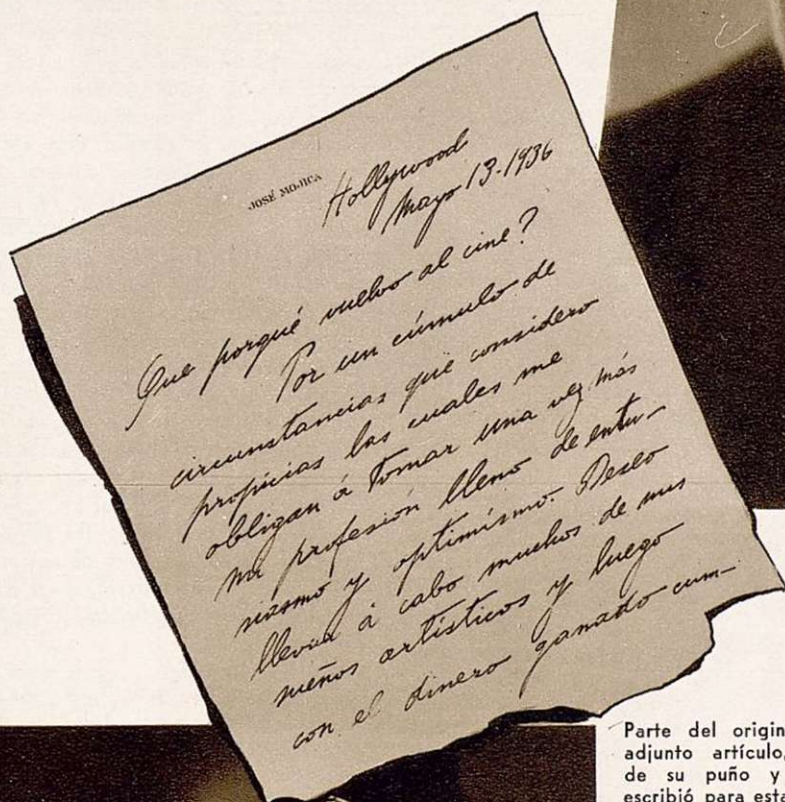 JOSÉ MOJICA
Hollywood
Mayo 13-1936
Que porqué vuelvo al cine?
Por un cúmulo de
circunstancias que considero
propicias las cuales me
obligan á tomar una vez más
mi profesión lleno de entu-
siasmo y optimismo. Deseo
llevar á cabo muchos de mis
sueños artísticos y luego
con el dinero ganado cum-
Parte del origin
adjunto artículo,
de su puño y
escribió para esta